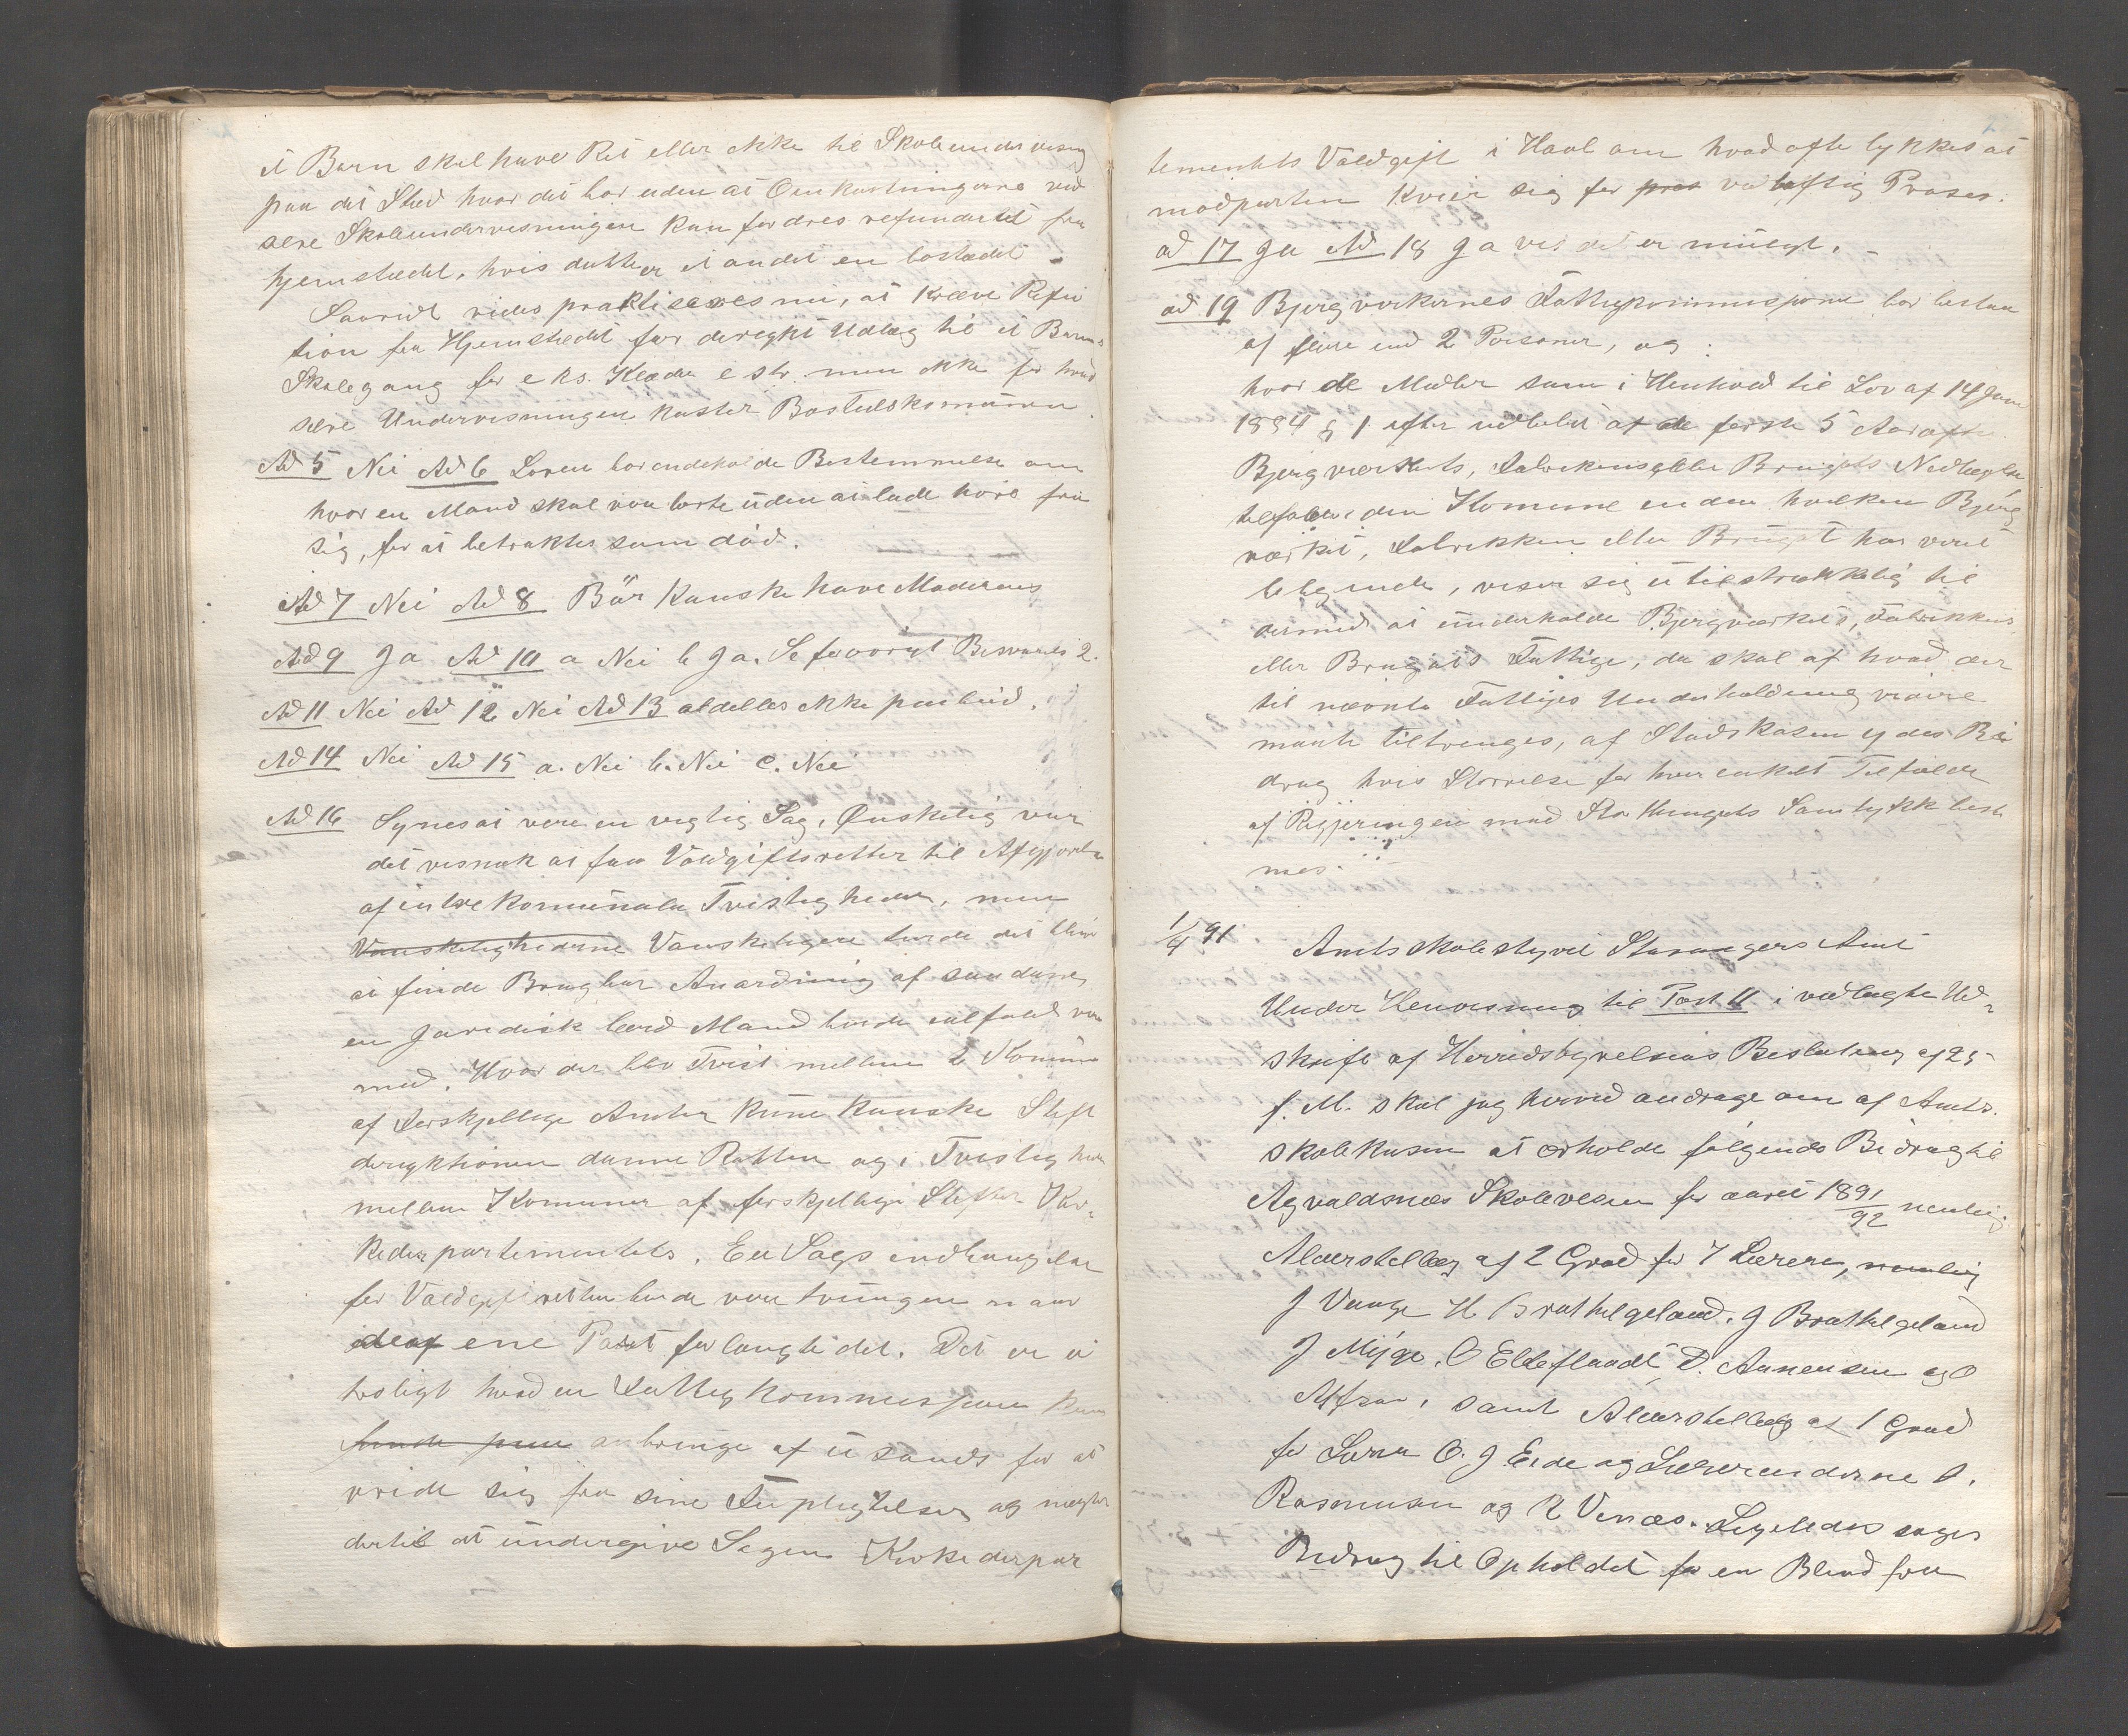 et Barn skal have Ret eller ikke til Skoleundervisning
paa det Sted hvor det bor uden at Omkostningerne ved
selve Skoleundervisningen kan fordres refunderet fra
hjemstedet, hvis dette er et andet en bostedet.
Saavidt vides praktiseres nu, at kræve Refu
tion fra Hjemstedet for deregte Udlæg til et Barns
Skolegang for eks. Klæder e slr. men ikke for hvad
selve Undervisningen koster Bostedskomunen.
Ad 5 Nei Ad 6 Loven bør indeholde Bestemmelse om
hvor en Mand skal von borte uden at lade høre fra
sig, for at betraktes som død.
Ad 7 Nei Ad 8 Bör Kanske have Moderens
Ad 9 Ja Ad 10 a Nei b Ja. Se forövrigt Besvarels 2.
Ad 11 Nei Ad 12 Nei Ad 13 aldelles ikke paabud.
Ad 14 Nei Ad 15 a. Nei b. Nei c. Nei
Ad 16 Synes at vere en vigtig Sag. Ønskelig var
det vesnok at faa Voldgiftsretter til Afgjørelse
af interkomunale Tvistigheder, men
Vanskelighederne Vanskeligere turde det blive
at finde Brugbar Anordning af saadanne,
en Juredisk lærd Mand burde ialfald være
med. Hvor der blev Tvist mellem 2 Komuner
af forskjellige Amter kune kanske Stift
deregktionen danne Retten og i Tvistigheder
mellem Komuner af forskjellige Stifter Kir-
kedepartementets. En Sags indbringelse
for Voldgiftsretten burde von tvungen naar
den ene Part forlangte det. Det er u
troligt hvad en Fattigkommissjon kan
finde paa anbringe af usands for at
vride sig fra sine Forpligtelser og negter
dertil at undergive Sagen Kirkedepar
tementets Voldgift i Haab om hvad ofte lykkes at
modparten kvier sig for pros vidløftig Proses.
ad 17 Ja Ad 18 Ja vis det er muligt.
ad 19 Bjergverkernes Fattigkommissjoner bør bestaa
af flere end 2 Personer, og:
hvor de Midler som i Henhold til Lov af 14 Juni
1884 § 1 efter udløbet af de første 5 Aar efter
Bjergverkets, Fabrikens eller Brugets Nedlæggelse
tilfalder den Komune inden hvilken Bjerg
verket, Fabrikken eller Bruget har veret
beliggende, viser sig utilstrækkelig til
dermed at underholde Bjergverkets, Fabrikkens
eller Brugets Fattige, da skal af hvad der
til nevnte Fattiges Underholdning videre
maate tiltrenges, af Stadskasen ydes Bi
drag hvis Størrelse for hver enkelt Tilfælde
af Regjeringen med Storthingets Samtykke bestem
mes.
1/4 91 Amtsskolestyret Stavangers Amt
Under Henvisning til Post 11 i vedlagte Ud-
skrift af Herredsstyrelsens Beslutning af 25
f. M. skal jeg herved andrage om af Amts-
skolekasen at erholde følgende Bidrag til
Agvaldsnes Skolevesen for aaret 1891/92 nemlig
Alderstillæg af 2 Grad for 7 Lærere, nemlig
J Vaage H Brathelgeland. J Brathelgeland
J Myge, O Elleflaadt D. Aanensen og O
Apsan, samt Alderstillæg af 1 Grad
for Lærer O. J Eide og Lærerinderne S.
Rasmusen og R Vinæs. Ligeledes søges
Bidrag til Opholdet for en Blind fra